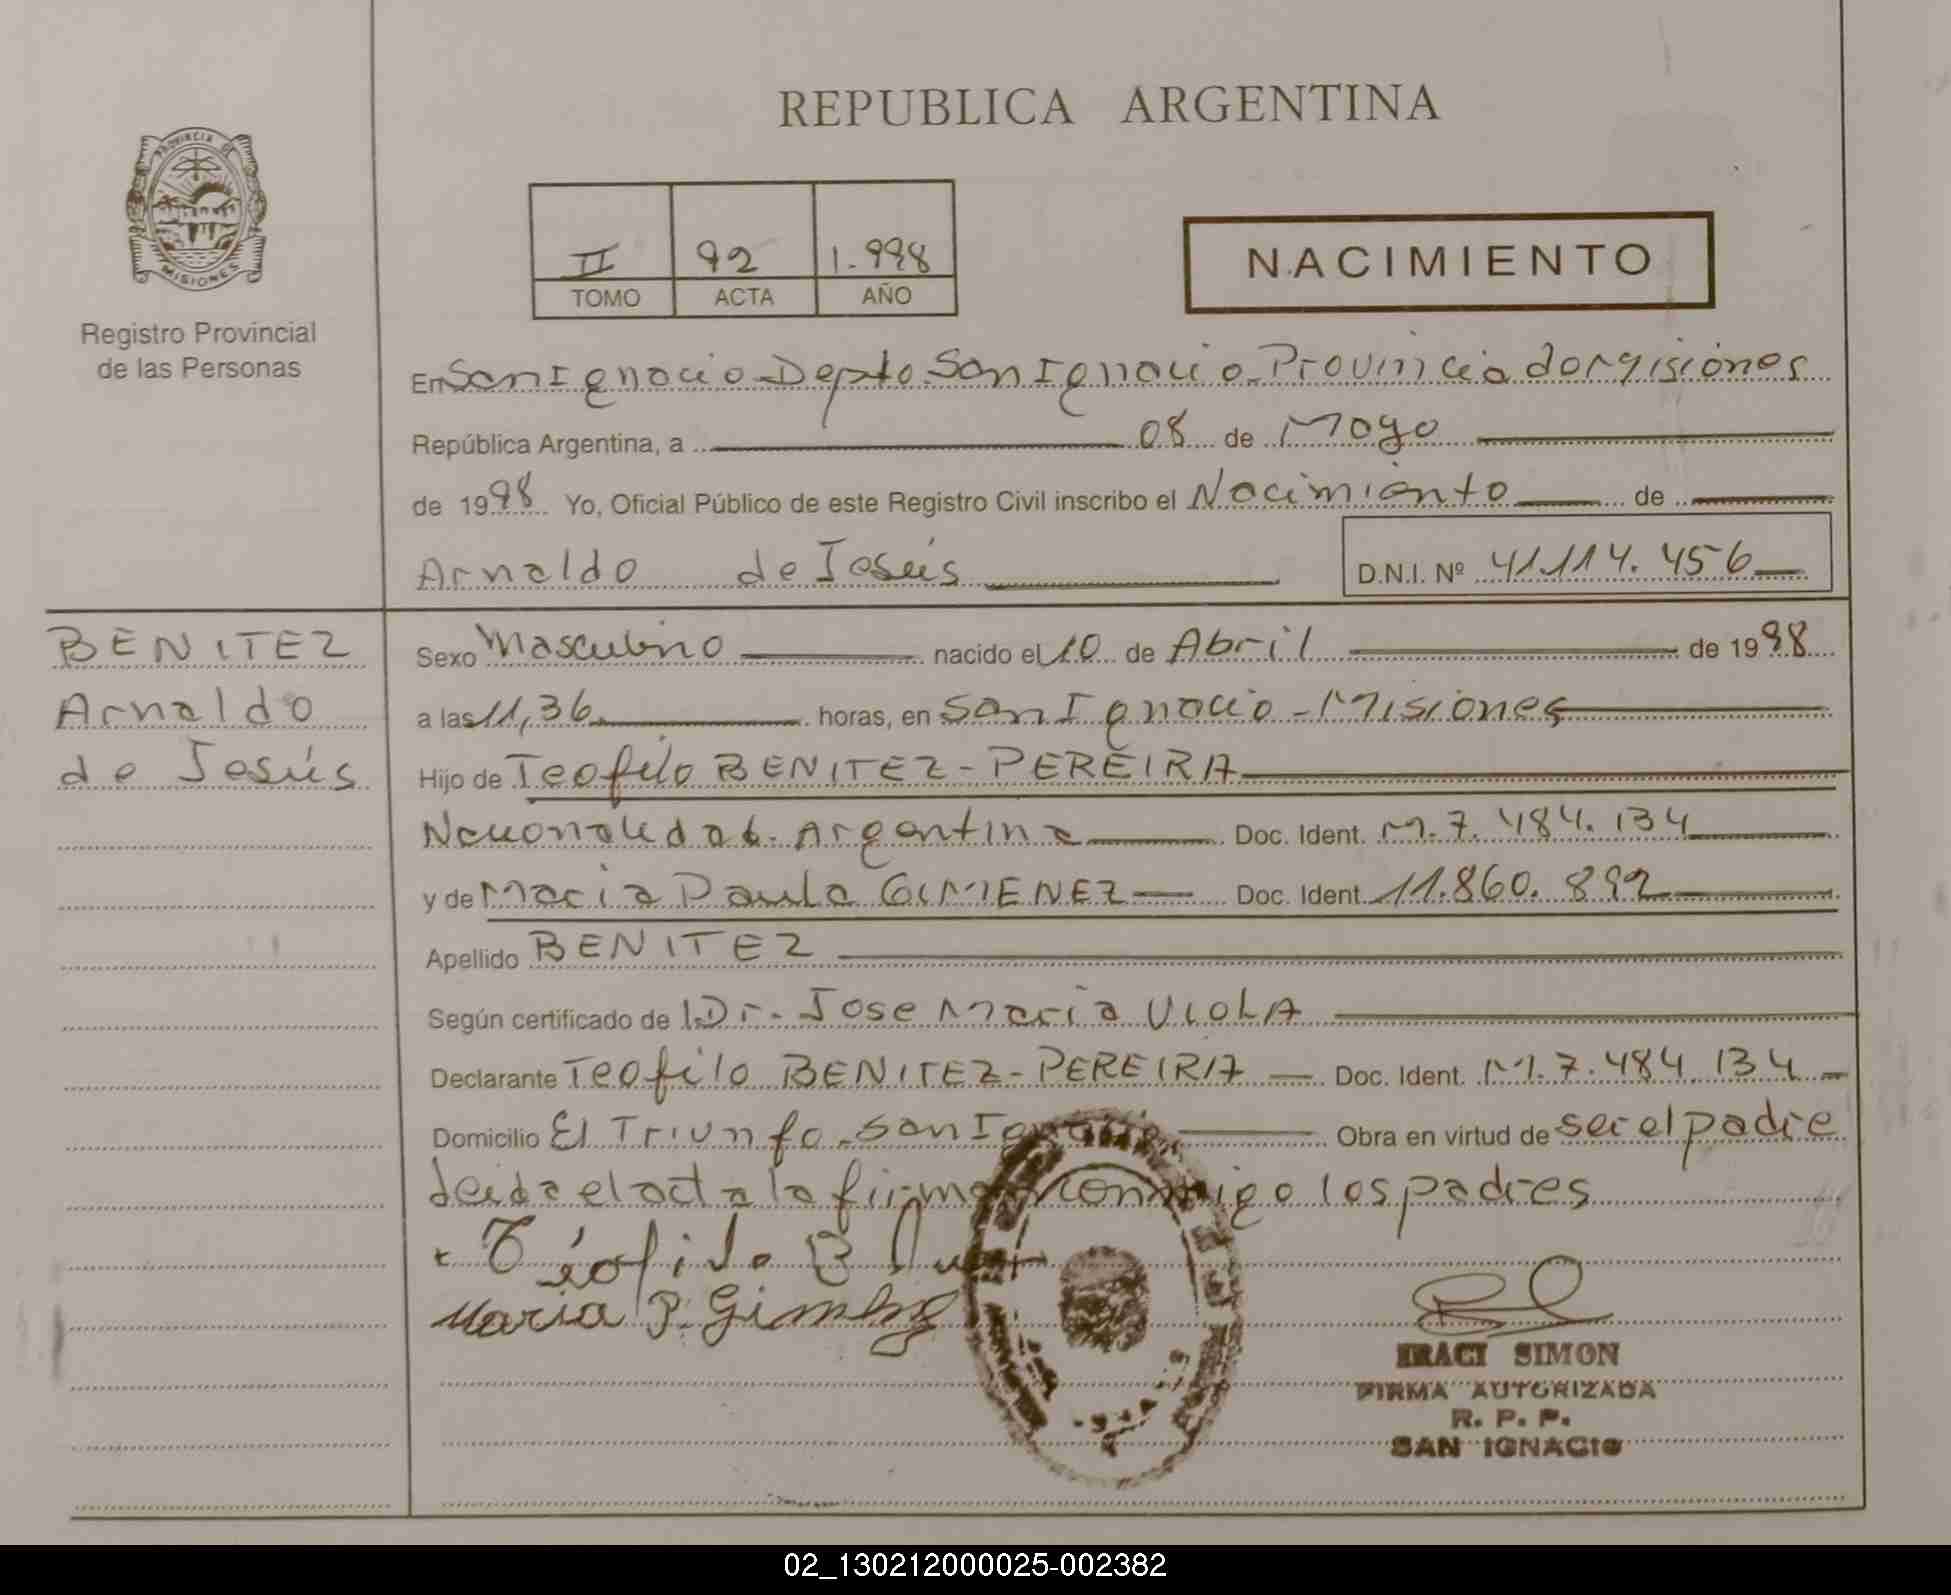 REPUBLICA ARGENTINA
PROVINCIA DE
MISIONES
Registro Provincial
de las Personas
II 92 1.998
TOMO ACTA AÑO
NACIMIENTO
En San Ignacio-Depto San Ignacio-Provincia de Misiones
República Argentina, a 08 de Mayo
de 1998 Yo, Oficial Público de este Registro Civil inscribo el Nacimiento de
Arnaldo de Jesús D.N.I. Nº 41.114.456
BENITEZ
Arnaldo
de Jesús
Sexo Masculino nacido el 10 de Abril de 1998
a las 11,36 horas, en San Ignacio-Misiones
Hijo de Teofilo BENITEZ-PEREIRA
Nacionalidad-Argentina Doc. Ident. M.7.484.134
y de Maria Paula GIMENEZ Doc. Ident. 11.860.892
Apellido BENITEZ
Según certificado de Dr. Jose Maria VIOLA
Declarante Teofilo BENITEZ-PEREIRA Doc. Ident. M.7.484.134
Domicilio El Triunfo-San Ignacio Obra en virtud de ser el padre
Leida el acta la firman conmigo los padres
Teófilo B
Maria P. Gimenez
IRACI SIMON
FIRMA AUTORIZADA
R. P. P.
SAN IGNACIO
02_130212000025-002382